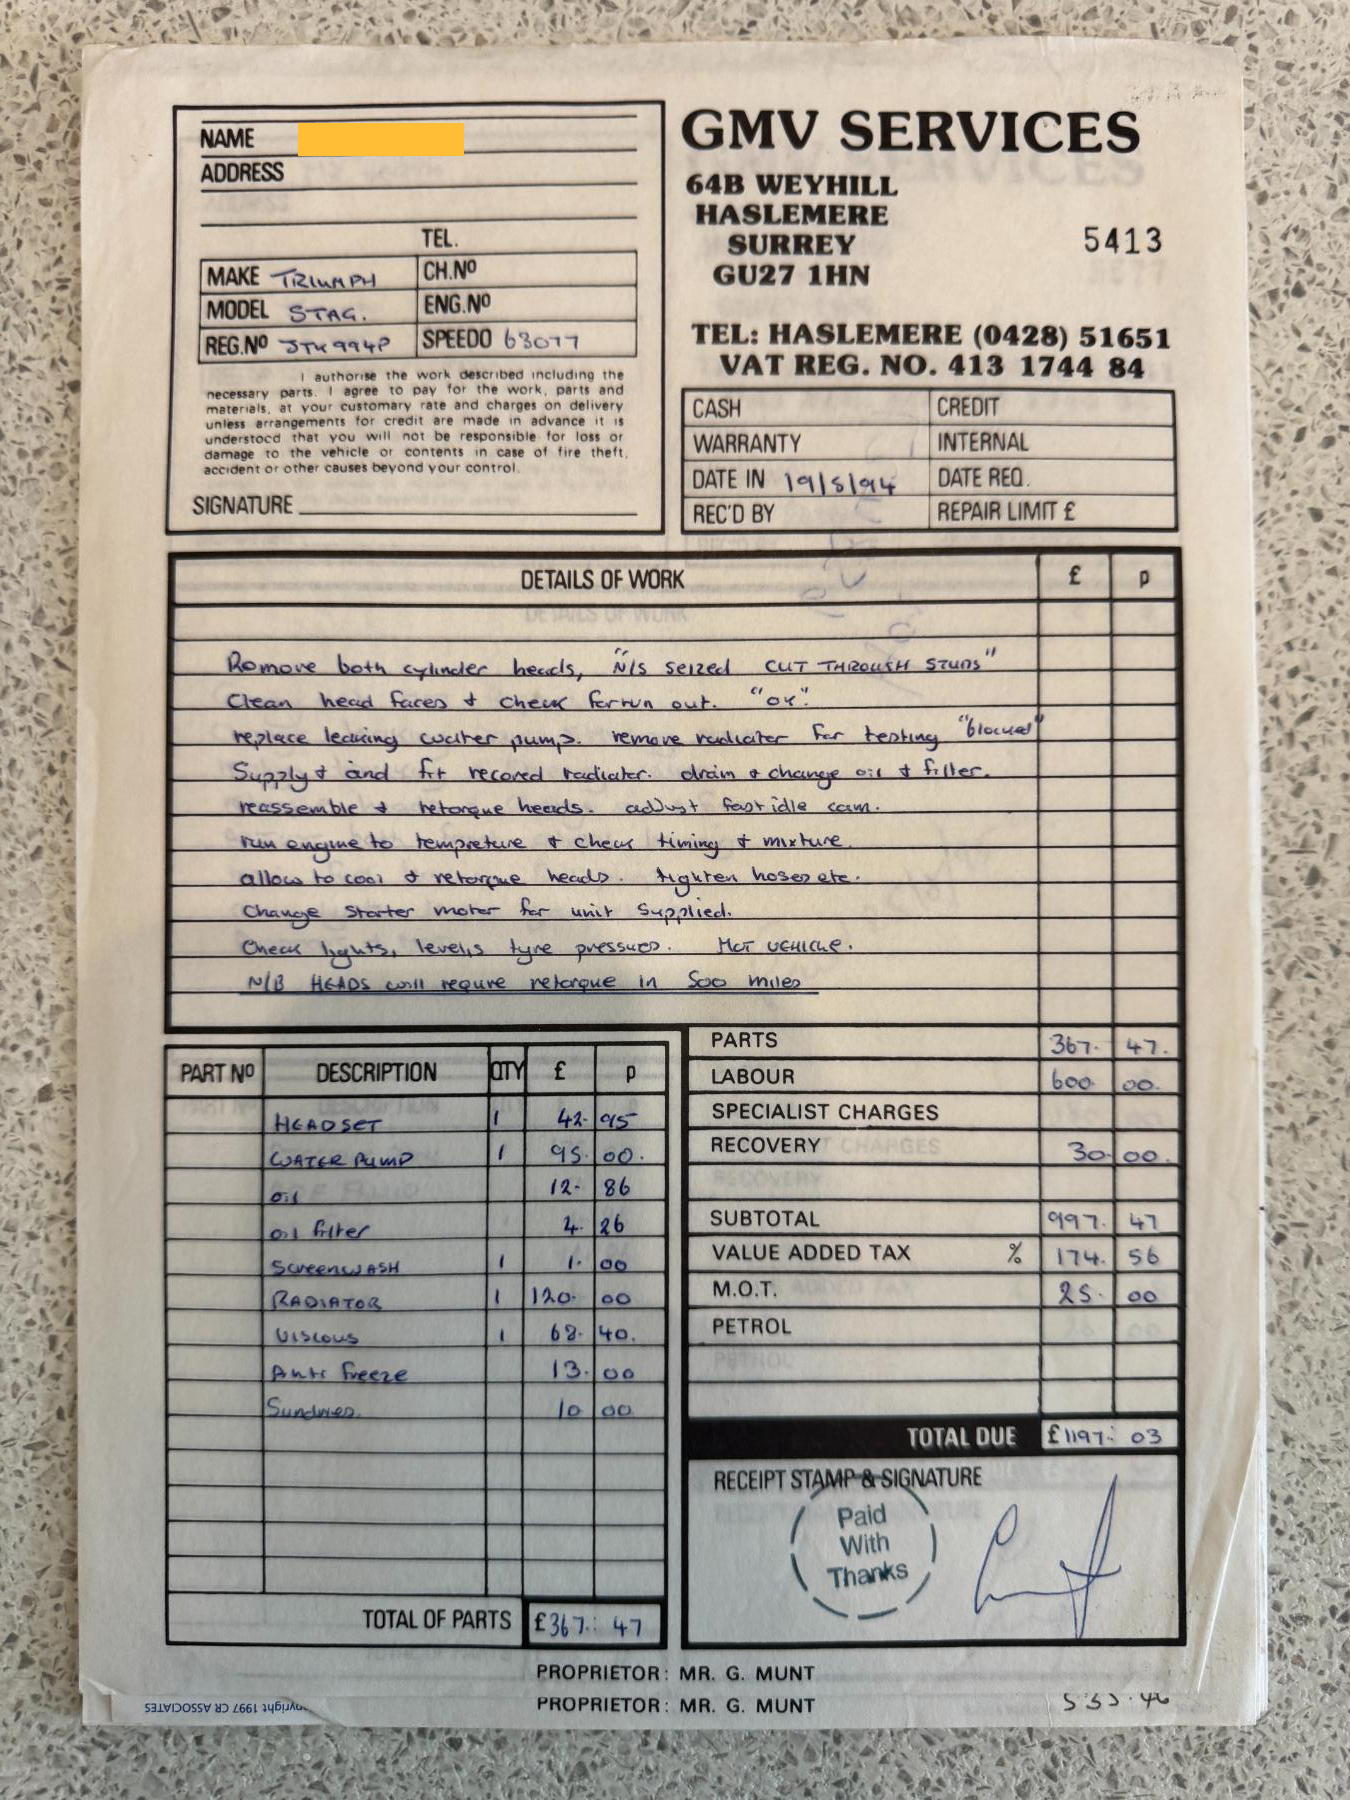 NAME
ADDRESS
TEL.
MAKE TRIUMPH CH.Nº
MODEL STAG. ENG.Nº
REG.Nº JTK994P SPEEDO 63077
I authorise the work described including the
necessary parts. I agree to pay for the work, parts and
materials, at your customary rate and charges on delivery
unless arrangements for credit are made in advance it is
understood that you will not be responsible for loss or
damage to the vehicle or contents in case of fire theft,
accident or other causes beyond your control.
SIGNATURE
GMV SERVICES
64B WEYHILL
HASLEMERE
SURREY
GU27 1HN
5413
TEL: HASLEMERE (0428) 51651
VAT REG. NO. 413 1744 84
CASH CREDIT
WARRANTY INTERNAL
DATE IN 19/5/94 DATE REQ.
REC'D BY REPAIR LIMIT £
DETAILS OF WORK £ p
Remove both cylinder heads, "N/S seized CUT THROUGH STUDS"
Clean head faces & check for run out. "OK".
replace leaking water pump. remove radiater for testing "blocked"
Supply & and fit recored radiater. drain & change oil & filter.
reassemble & retorque heads. adjust fast idle cam.
run engine to tempreture & check timing & mixture.
allow to cool & retorque heads. tighten hoses etc.
Change starter motor for unit supplied.
Check lights, levels, tyre pressures. MOT VEHICLE.
N/B HEADS will requre retorque in 500 miles
PART Nº DESCRIPTION QTY £ p
HEADSET 1 42. 95
WATER PUMP 1 95. 00.
oil 12. 86
oil filter 4. 26
SCREENWASH 1 1. 00
RADIATOR 1 120. 00
VISCOUS 1 68. 40.
Anti freeze 13. 00
Sundries. 10 00
TOTAL OF PARTS £367: 47
PARTS 367. 47.
LABOUR 600. 00.
SPECIALIST CHARGES
RECOVERY 30. 00.
SUBTOTAL 997. 47
VALUE ADDED TAX % 174. 56
M.O.T. 25. 00
PETROL
TOTAL DUE £1197: 03
RECEIPT STAMP & SIGNATURE
Paid
With
Thanks
PROPRIETOR: MR. G. MUNT
PROPRIETOR: MR. G. MUNT
535.46
copyright 1997 CR ASSOCIATES